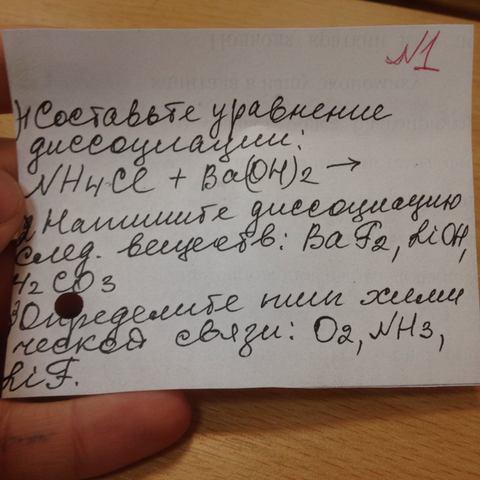 N1
1) Составьте уравнение
диссоциации:
NH4Cl + Ba(OH)2 →
2) Напишите диссоциацию
след. веществ: BaF2, LiOH,
H2CO3
3) Определите тип хими
ческой связи: O2, NH3,
LiF.